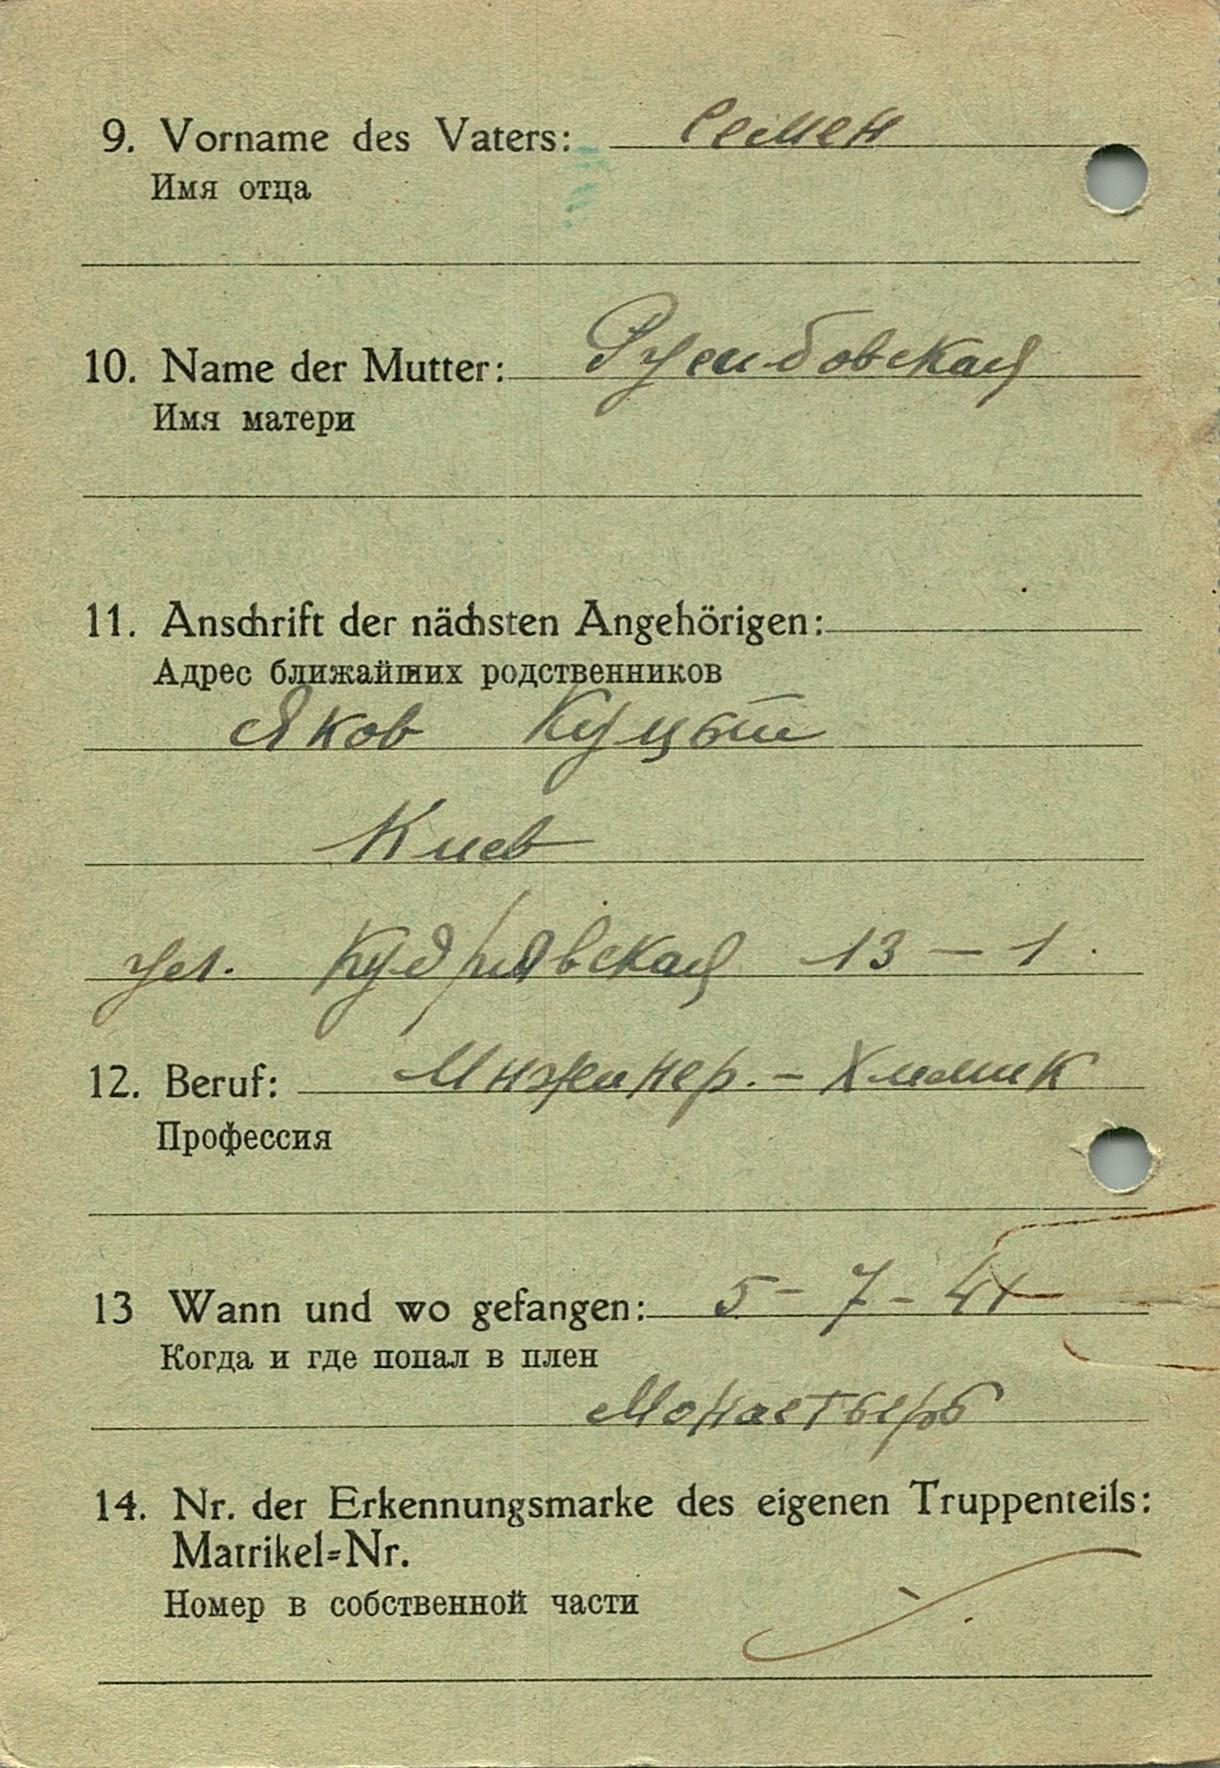 9. Vorname des Vaters: Семен
Имя отца
10. Name der Mutter:
Имя матери
11. Anschrift der nächsten Angehörigen:
Адрес ближайших родственников
Яков Куцый
Киев
ул. Кудрявская 13 – 1.
12. Beruf: Инженер. – Химик
Профессия
13 Wann und wo gefangen: 5 – 7 – 41
Когда и где попал в плен
Монастырь
14. Nr. der Erkennungsmarke des eigenen Truppenteils:
Matrikel=Nr.
Номер в собственной части